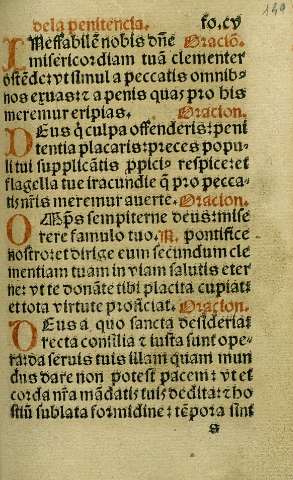 de la penitencia. fo. cv
149
INeffabilẽ nobis dñe Oraciõ.
misericordiam tuã clementer
ostẽde: vt simul a peccatis omnib⁹
nos exuas: ⁊ a penis quas pro his
meremur eripias. Oracion.
DEus q̃ culpa offenderis: peni
tentia placaris: preces popu
li tui supplicãtis ꝓpici⁹ respice: et
flagella tue iracundie q̃ pro pecca
tis nr̃is meremur auerte. Oracion.
OMp̃s sempiterne deus: mise
rere famulo tuo. N. pontifice
nostro: et dirige eum secundum cle
mentiam tuam in viam salutis eter
ne: vt te donãte tibi placita cupiat:
et tota virtute proficiat. Oracion.
DEus a quo sancta desideria:
recta consilia ⁊ iusta sunt ope-
ra: da seruis tuis illam quam mun
dus dare non potest pacem: vt et
corda nr̃a mãdatis tuis dedita: ⁊ ho
stiũ sublata formidine: tẽpora sint
s